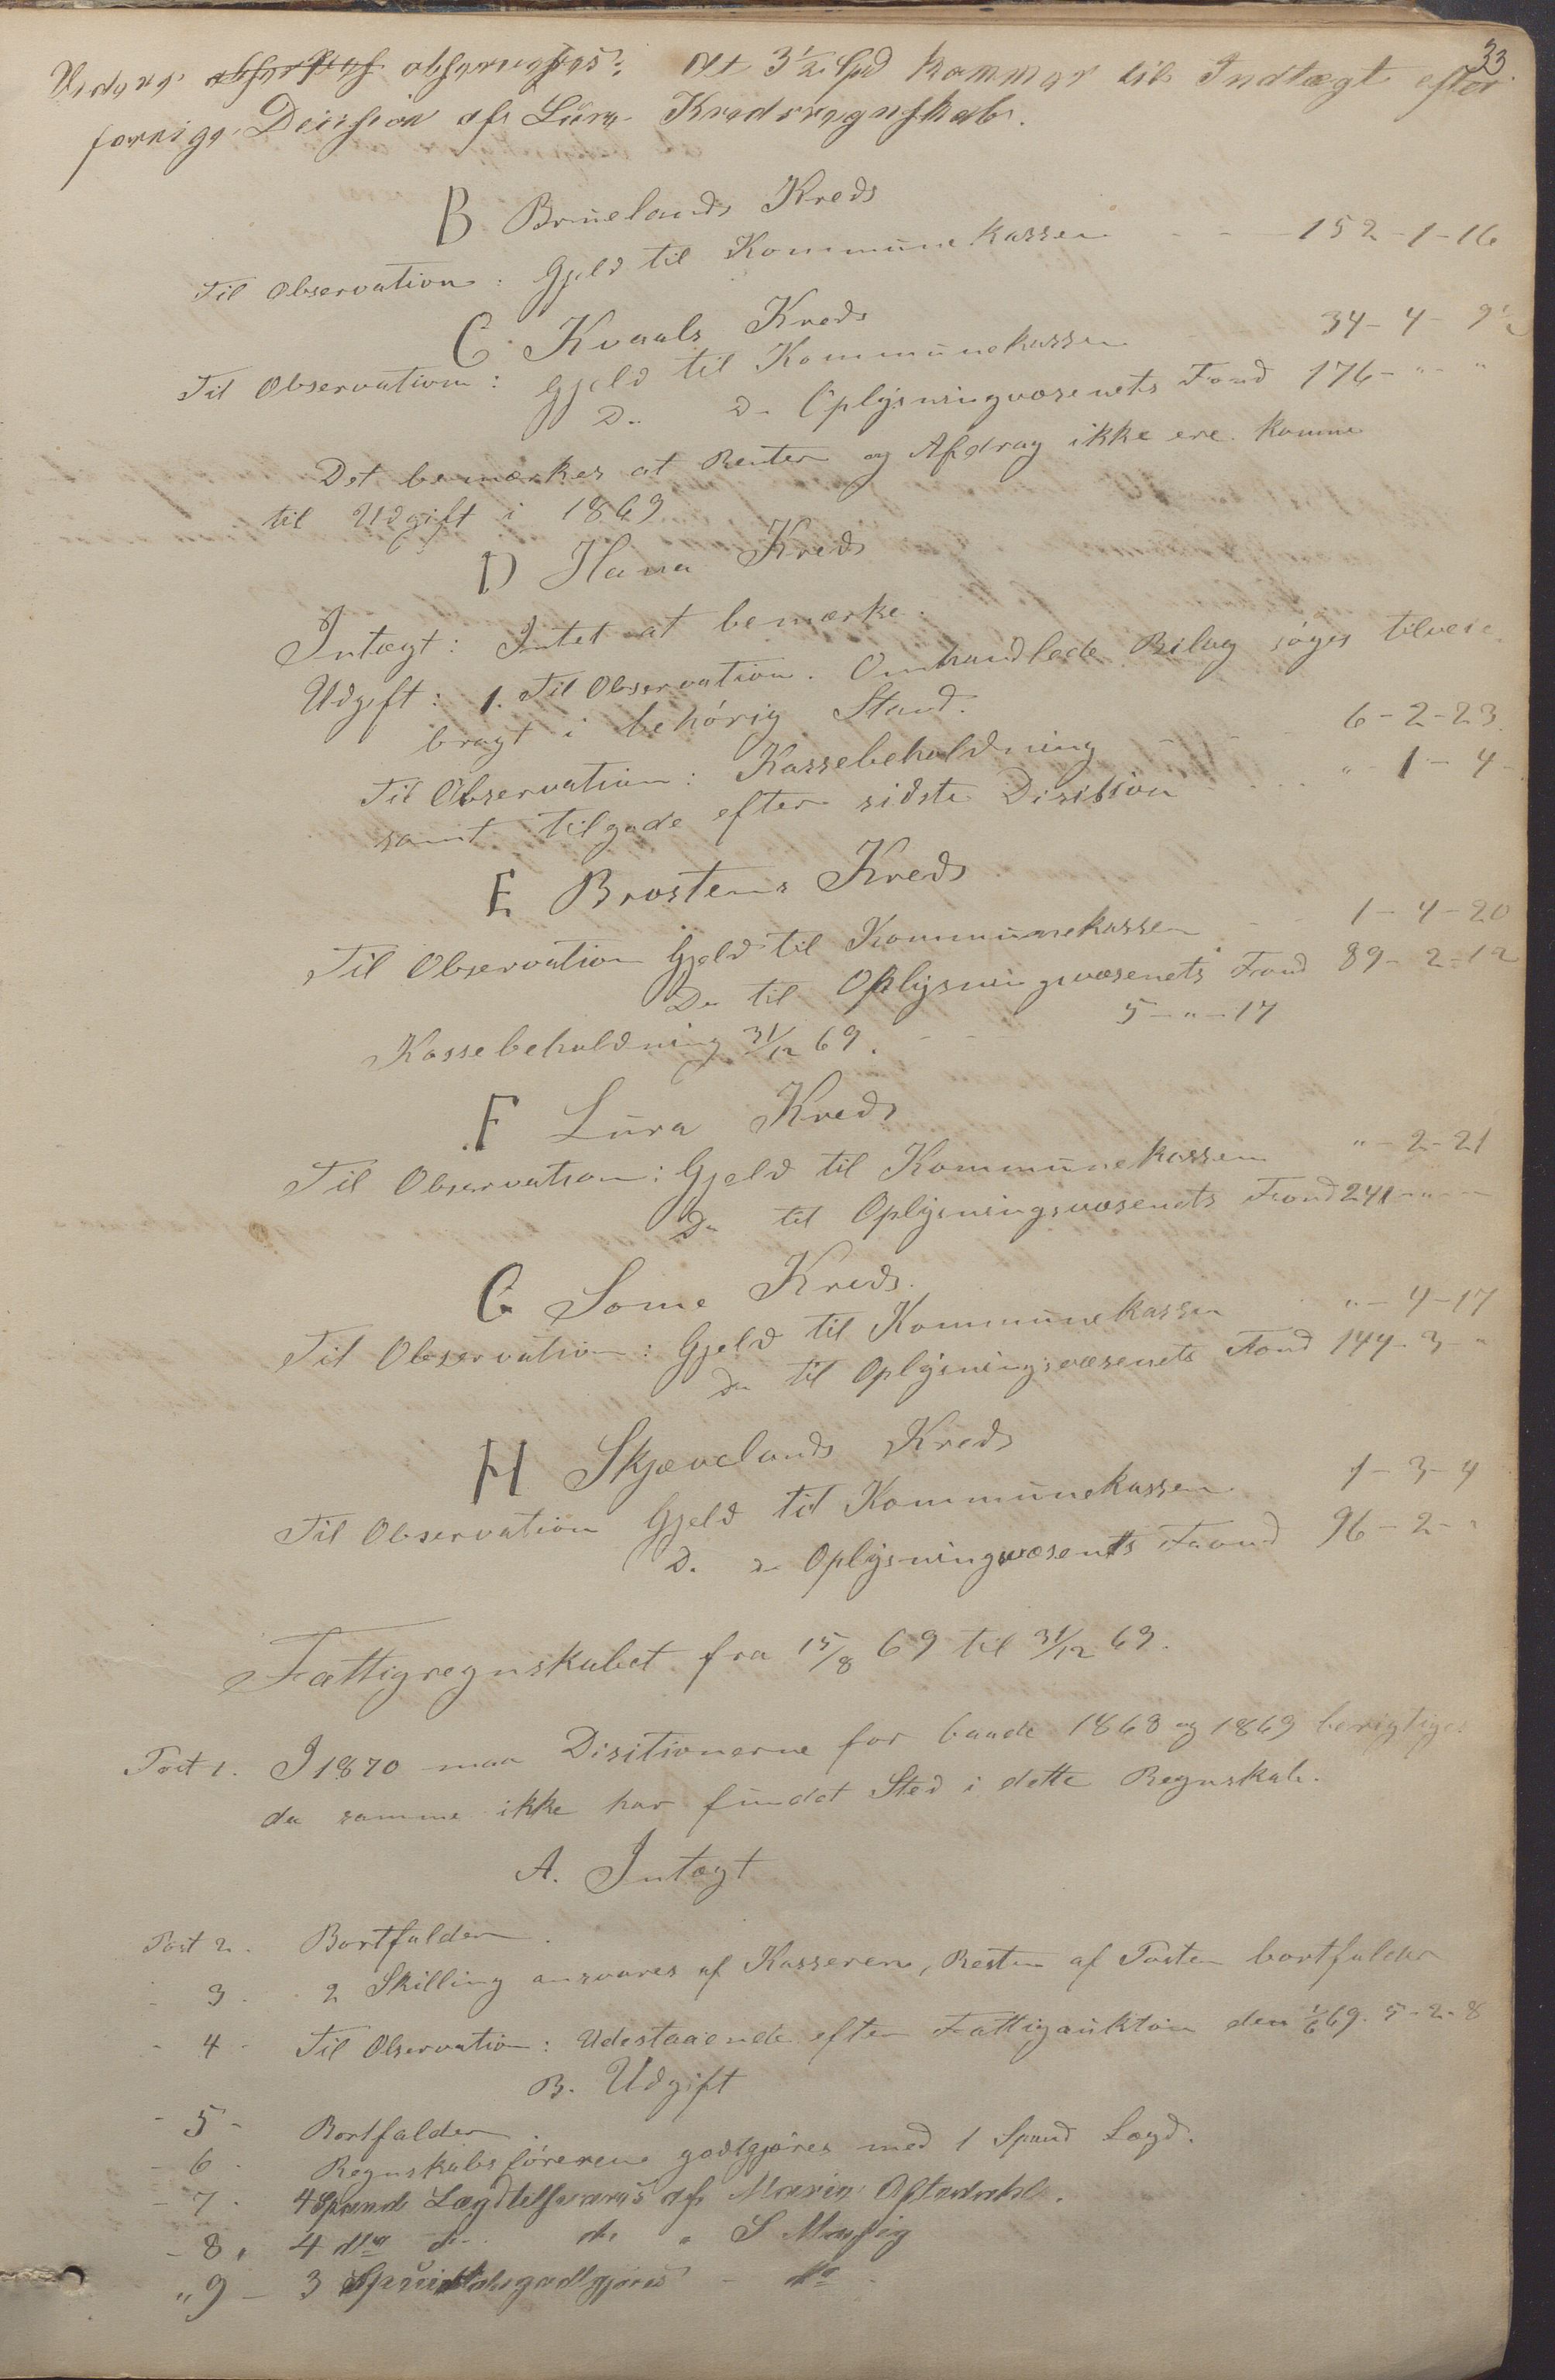 33.
Videre observeres: At 3 1/2 Spd kommer til Indtægt efter
forrige Decision af Lura Kredsregnskab.
B Bruelands Kreds
Til Observation: Gjeld til Kommunekassen - - - 152-1-16
C. Kvaals Kreds
Til Observation: Gjeld til Kommunekassen 34-4-9 1/2
Do do Oplysningvæsenets Fond 176-"-"
Det bemærkes at Renter og Afdrag ikke ere komne
til Udgift i 1869
D Hana Kreds
Intægt: Intet at bemærke.
Udgift: 1. Til Observation. Omhandlede Bilag søges tilveie-
bragt i behörig Stand.
Til Observation: Kassebeholdning - - - 6-2-23.
samt tilgode efter sidste Disission . . . "-1-4-
E Brostens Kreds
Til Observation Gjeld til Kommunekassen - - 1-4-20
Do til Oplysningsvæsenets Fond 89-2-12
Kassebeholdning 31/12 69. - - 5-"-17
F Lura Kreds
Til Observation: Gjeld til Kommunekassen "-2-21
Do til Oplysningsvæsenets Fond 241-"-
G Some Kreds.
Til Observation: Gjeld til Kommunekassen "-4-17
Do til Oplysningsvæsenets Fond 144-3-"
H Skjævelands Kreds
Til Observation Gjeld til Kommunekassen 1-3-4
Do do Oplysningvæsenets Faond 96-2-"
Fattigregnskabet fra 15/8 69 til 31/12 69.
Post 1. I 1870 maa Disitionerne for baade 1868 og 1869 berigtiges
da samme ikke har fundet Sted i dette Regnskab.
A. Intægt
Post 2. Bortfalder.
- 3. 2 Skilling ansvares af Kasseren, Resten af Posten bortfalder
- 4 - Til Observation: Udestaaende efter Fattigauktion den 1/6 69. 5-2-8
B. Udgift
- 5 - Bortfalder.
- 6 . Regnskabsföreren godtgjøres med 1 Spand Lægd.
- 7 . 4 Spand Lægd tilsvares af
- 8 . 4 do do do " S
" 9 - 3 godtgjøres - do -